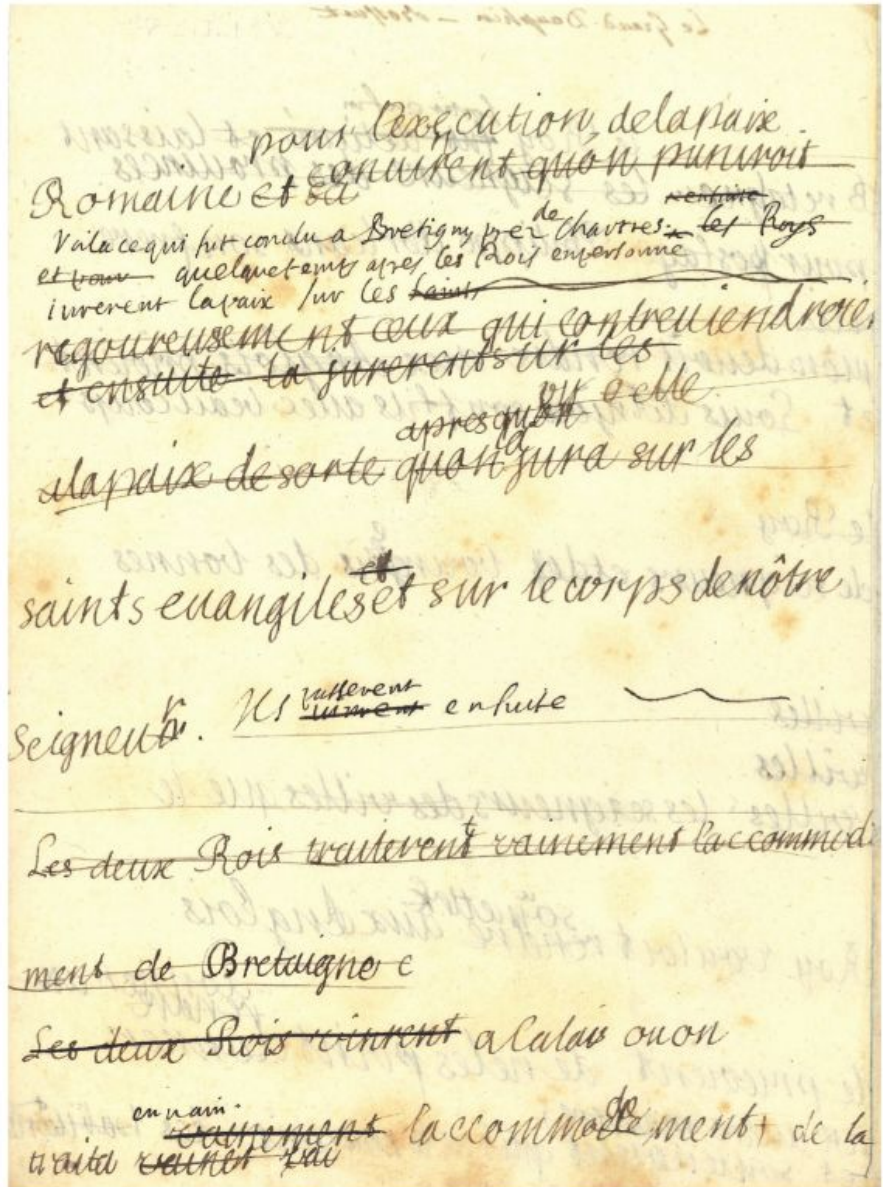 pour l'execution, delapaix
Romaine et sa convinrent quon puniroit
ensuite
Voila ce qui fut conclu a Bretigny prez de Chartres. les Roys
et pour quelque temps apres les Rois en personne
iurerent la paix sur les saints
regoureusement ceux qui contreuiendroient
et ensuite la jurerent sur les
apres qu'on elle
alapaix de sorte quon la jura sur les
saints euangiles et et sur le corps de nôtre
seigneur. Ils passerent vinrent ensuite
Les deux Rois traiterent vainement laccommod
ment de Bretaigne e
Les deux Rois vinrent a Calais ou on
en vain.
vainement laccommodement de la
traita vainet vai